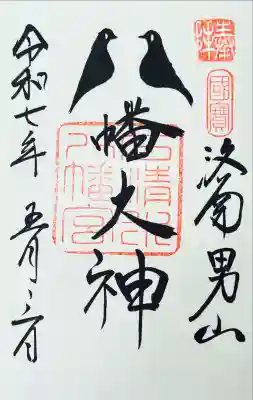 奉拝
國寶
洛南 男山
八幡大神
石清水八幡宮
令和七年 五月二六日